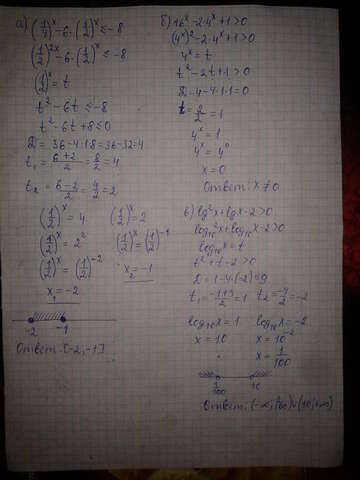 а) (1/4)^x - 6·(1/2)^x ≤ -8
(1/2)^2x - 6·(1/2)^x ≤ -8
(1/2)^x = t
t² - 6t ≤ -8
t² - 6t + 8 ≤ 0
D = 36 - 4·1·8 = 36 - 32 = 4
t₁ = (6+2)/2 = 8/2 = 4
t₂ = (6-2)/2 = 4/2 = 2
(1/2)^x = 4   (1/2)^x = 2
(1/2)^x = 2²   (1/2)^x = (1/2)^-1
(1/2)^x = (1/2)^-2   x₂ = -1
x₁ = -2
-2   -1
Ответ: [-2; -1]
б) 16^x - 2·4^x + 1 > 0
(4^x)² - 2·4^x + 1 > 0
4^x = t
t² - 2t + 1 > 0
D = 4 - 4·1·1 = 0
t = 2/2 = 1
4^x = 1
4^x = 4⁰
x = 0
Ответ: x ≠ 0
в) lg²x + lgx - 2 > 0
log₁₀²x + log₁₀x - 2 > 0
log₁₀x = t
t² + t - 2 > 0
D = 1 - 4·(-2) = 9
t₁ = (-1+3)/2 = 1   t₂ = -4/2 = -2
log₁₀x = 1   log₁₀x = -2
x = 10   x = 10^-2
x = 1/100
1/100   10
Ответ: (-∞; 1/100) ∪ (10; +∞)